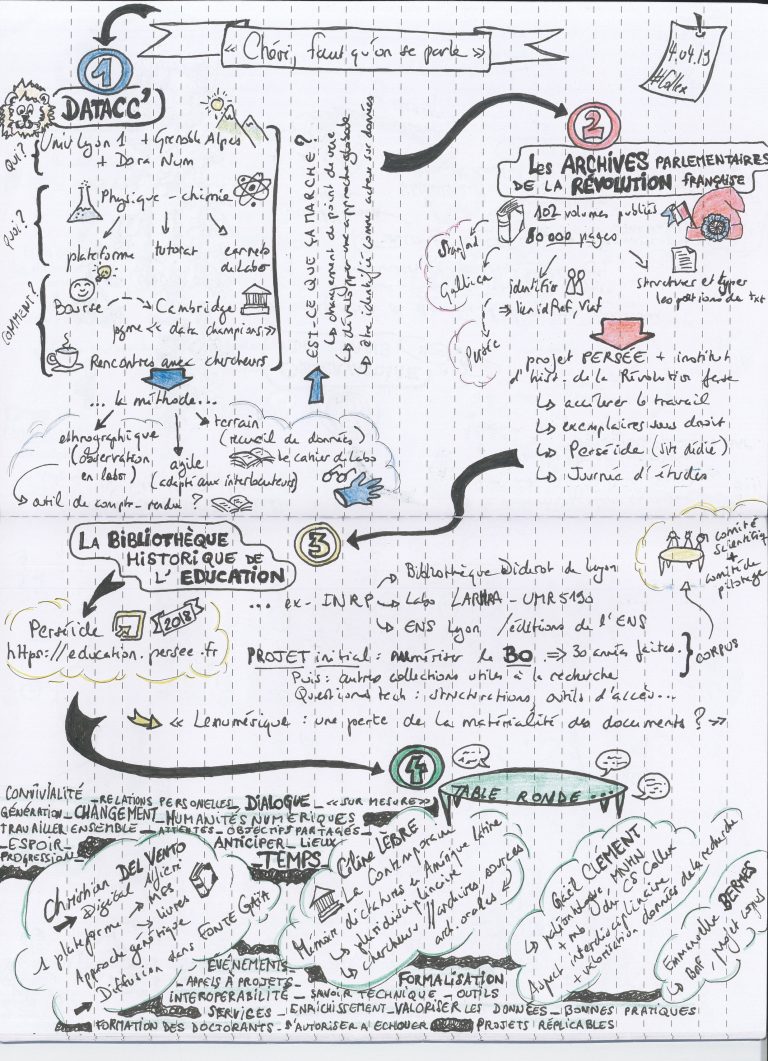 « Chéri, faut qu'on se parle »
4.04.19
#Collex
1
DATACC'
QUI ?
Univ Lyon 1 + Grenoble Alpes
+ Dora Num
QUOI ?
Physique - chimie
plateforme
tutorat
carnets
de labo
COMMENT ?
Bourse
Cambridge
pgme << data champions >>
Rencontres avec chercheurs
... la méthode...
ethnographique
(observation
en labo)
agile
(adapté aux interlocuteurs)
terrain
(recueil de données)
le cahier de labo
outil de compte-rendu ?
EST-CE QUE ÇA MARCHE ?
↳ changement de point de vue
↳ développer une approche globale
↳ être identifié comme acteur sur données
2
LES ARCHIVES PARLEMENTAIRES
DE LA RÉVOLUTION FRANÇAISE
102 volumes publiés
80 000 pages
Stanford
Gallica
Persée
identifier
⇒ lien idRef, Viaf
structurer et typer
les portions de txt
projet PERSÉE + institut
d'hist. de la Révolution fçse
↳ accélérer le travail
↳ exemplaires sous droit
↳ Perséide (site dédié)
↳ Journée d'études
3
LA BIBLIOTHÈQUE
HISTORIQUE DE
L'EDUCATION
Perséide
2018
https://education.persee.fr
... ex- INRP
Bibliothèque Diderot de Lyon
Labo LARHRA - UMR 5190
ENS Lyon / éditions de l'ENS
comité
scientifique
+
comité de
pilotage
PROJET initial : numériser le BO ⇒ 30 années faites.
Puis : autres collections utiles à la recherche
Questions tech : structurations, outils d'accès...
CORPUS
« Le numérique : une perte de la matérialité des documents ? »
4
TABLE RONDE ...
CONVIVIALITÉ _ RELATIONS PERSONELLES _ DIALOGUE _ << SUR MESURE >>
GÉNÉRATION _ CHANGEMENT _ HUMANITÉS NUMÉRIQUES
TRAVAILLER ENSEMBLE _ ATTENTES _ OBJECTIFS PARTAGÉS _
_ ESPOIR _ ANTICIPER _ LIEUX
PROGRESSION _ TEMPS
Christian DEL VENTO
Digital Alfieri
1 plateforme → MSS
→ livres
Approche génétique
Diffusion dans FONTE GAIA
Céline LÈBRE
La Contemporaine
Mémoire dictatures en Amérique latine
↳ pluridisciplinaire
↳ chercheurs // archives sources
arch. orales
Gaël CLEMENT
↳ paléontologue, MNHN
+ mb du CS Collex
Aspect interdisciplinaire
+ valorisation données de la recherche
Emmanuelle BERMÈS
↳ BnF, projet Corpus
ÉVÉNEMENTS _
_ APPELS À PROJETS _
INTEROPÉRABILITÉ _ SAVOIR TECHNIQUE _ OUTILS
FORMALISATION
SERVICES _ ENRICHISSEMENT _ VALORISER LES DONNÉES _ BONNES PRATIQUES
FORMATION DES DOCTORANTS _ S'AUTORISER A ECHOUER
PROJETS RÉPLICABLES